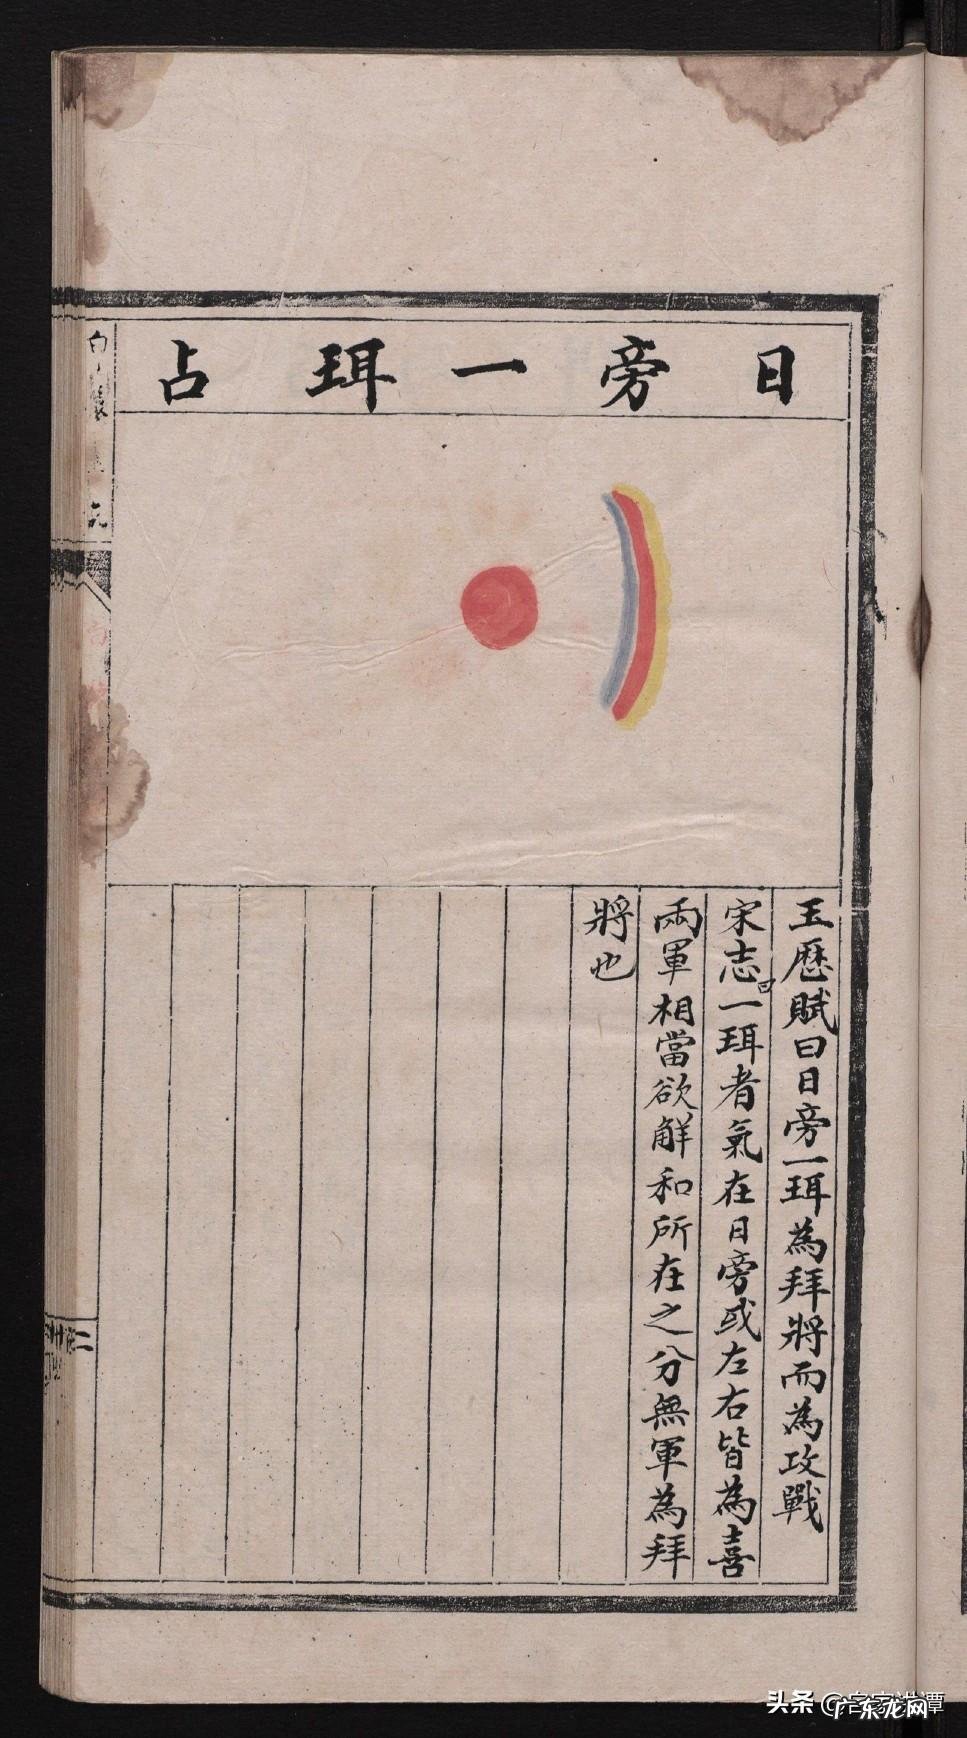 日旁一珥占
玉歷賦曰日旁一珥為拜將而為攻戰
宋志曰一珥者氣在日旁或左右皆為喜
兩軍相當欲解和所在之分無軍為拜
將也
头条
广东龙网